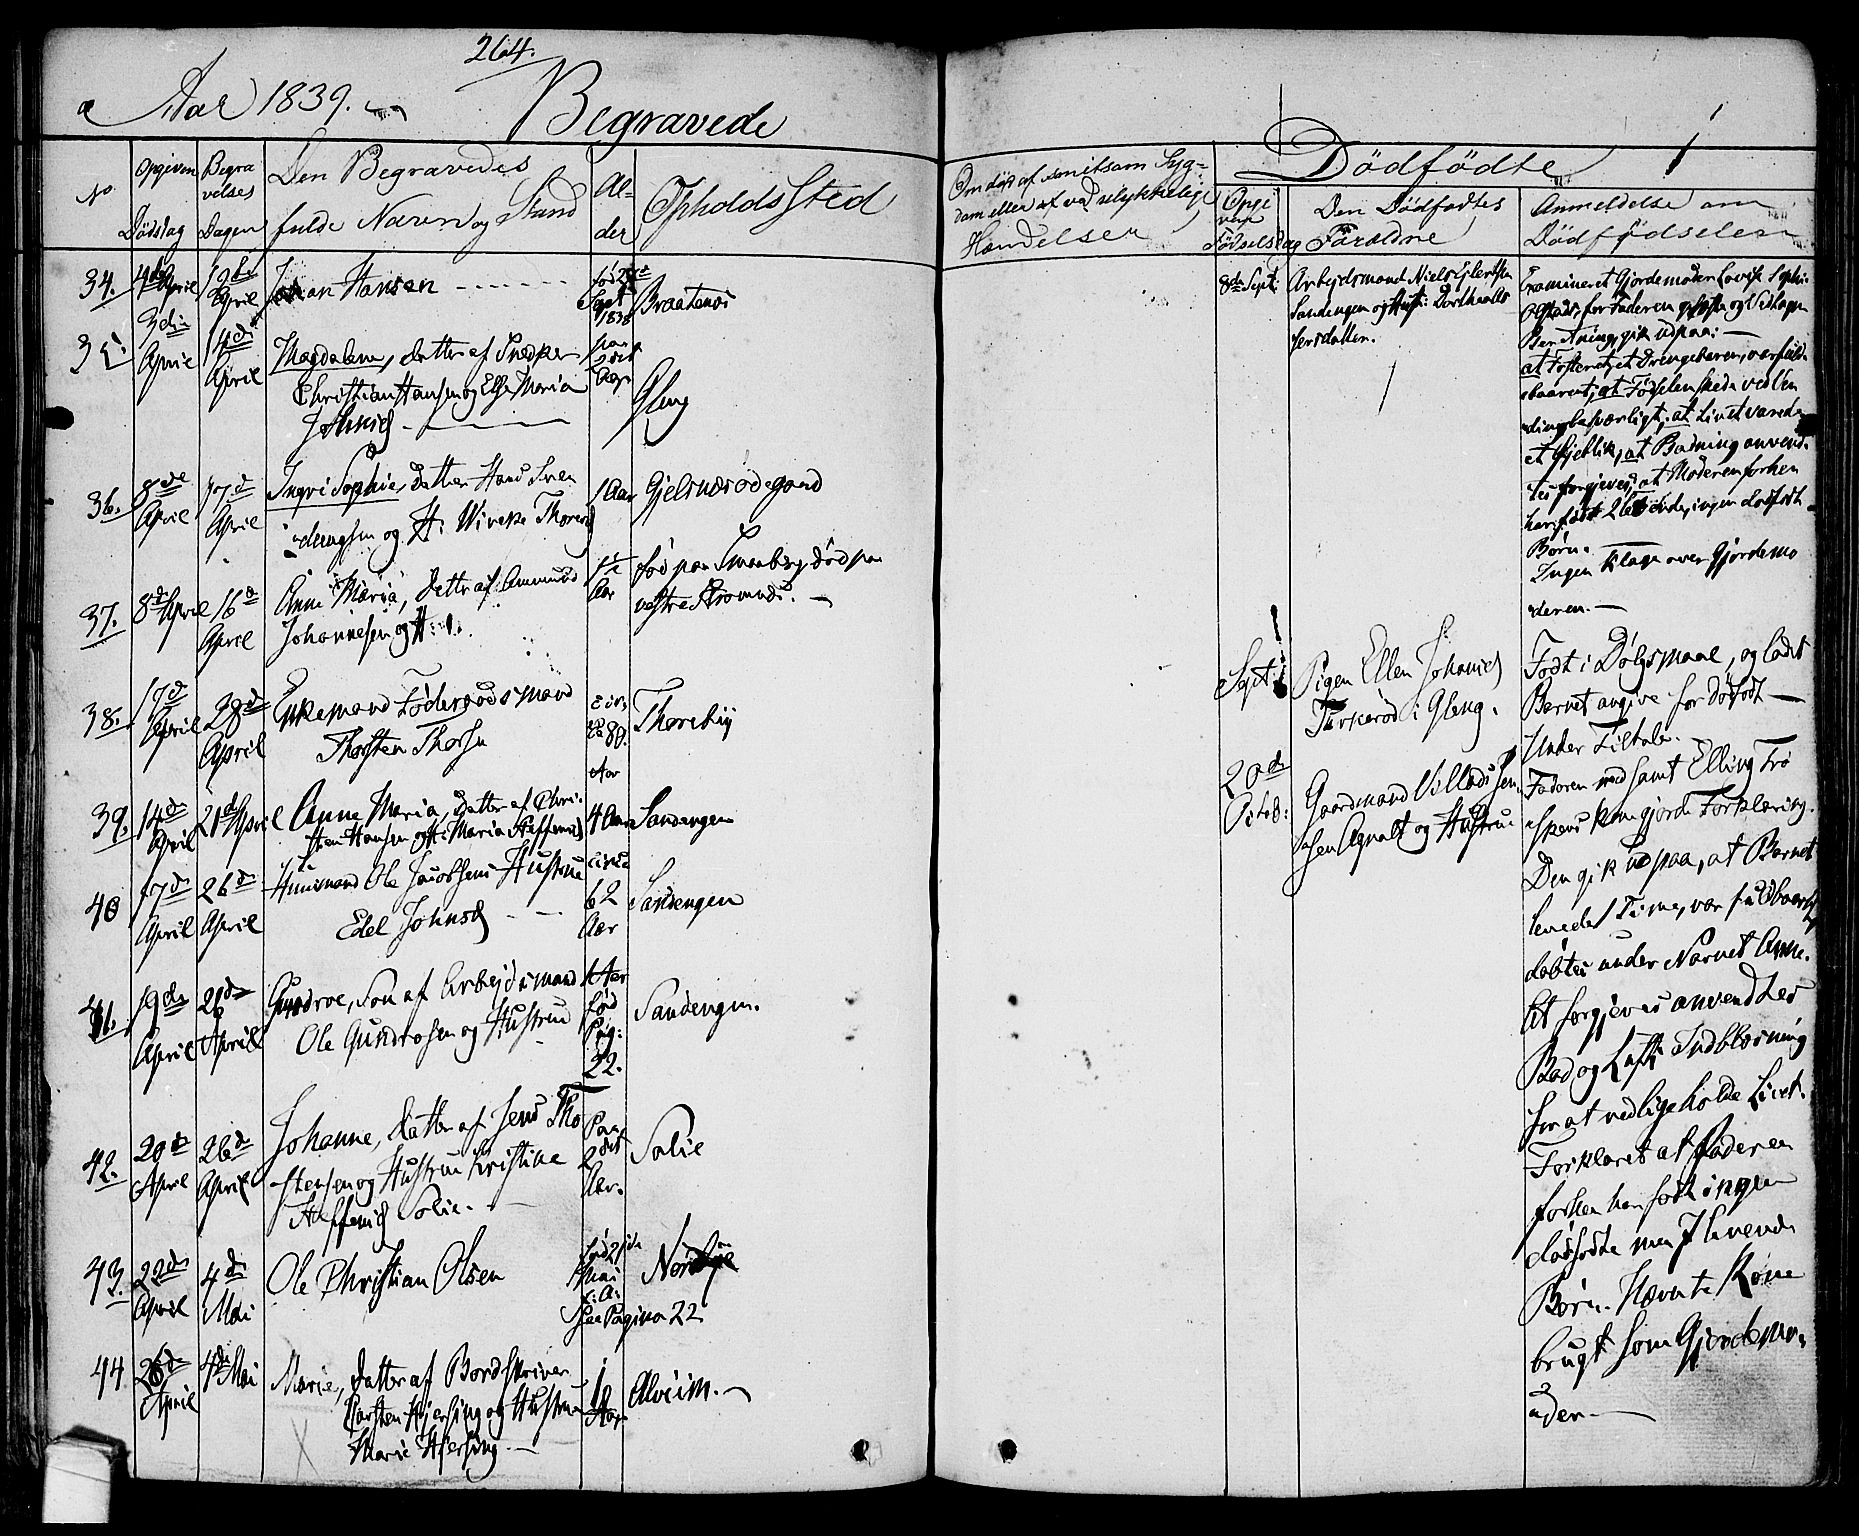 264.
Aar 1839.
Begravede
No
Opgiven Dødsdag
Begravelses Dagen
Den Begravedes fulde Navn og Stand
Alder
Opholdssted
34. 4de April 12te April Johan Hansen Sept 1838 Braatenes
35. 3die April 14de April Magdalena, datter af Snedker
Christian Hansen og Else Maria
paa 2det Aar Gleng
36. 8de April 17de April Ingri Sophie, datter Hans Sven
og H: Wiveke 1 Aar Gjelsnæsødegaard
37. 8de April 16de April Anne Maria, datter af Ammund
Johannesen og H:
Aar fød paa Smaaberg død paa
vestre
38. 17de April 28de April Enkemand Føderaadsmand
Thorsten Thorsen
circa 80 Aar Thorebÿ
39. 14de April 21de April Anne Maria, datter af Chri-
sten Hansen og H: Maria Steffensd
4 Aar Sandengen
40 17de April 26de April Huusmand Ole Jacobsens Hustrue
Edel Johnsd
circa 62 Aar Sandengen
41. 19de April 26de April Gundroe, Søn af Arbejdsmand
Ole Gundrosen og Hustrue
1 Aar fød Pag: 22. Sandengen.
42. 20de April 26de April Johanne, datter af Jens Tho
stensen og Hustrue Kristine
Steffensd Solie.
Paa 2det Aar. Solie
43. 22de April 4de Mai Ole Christian Olsen
fød Mai f: A: See Pagina 22
44 26de April 4de Mai Marie, datter af Bordskriver
Carsten Hjersing og Hustrue
Marie Hjersing.
Aar Alveim.
Om død af smitsom Syg-
dom eller af vanlykkelige
Hændelser
Dødfødte
Opgiven Fødselsdag
Den Dødfødtes
Forældre
Anmeldelse om
Dødfødselen
8de Sept: Arbejdsmand Niels Ejlertsen
Sandengen og Hust: Dorthea
Examineret Gjordemoder Lovise Sophie
for Faderen
Beretning, gik udpaa:
at Fosteret, et Drengebarn, var fuld-
baaret, at Fødselen skede ved Ven
ding besværligt, at Livet varede
et Øjeblik, at Badning anvend-
tes forgjeves, at Moderen forhen
har født 2 levende, ingen dødfødt
Børn.
Ingen Klage over Gjordemo
deren.
Sept: Pigen Ellen Johannesd
i Gleng.
Født i Dølgsmaal, og ladet
Barnet angive for dødfødt
Under Tiltale.
20de Octob: Gaardmand Villads
Agnalt og Hustrue
Faderen med samt Elling
gjorde Forklaring.
Den gik ud paa, at Barnet
levede 1 Time, var fuldbaaret
døbtes under Navnet Anne.
At forgjeves anvendtes
Bad og Lufts Indblæsning
for at vedligeholde Livet.
Forklaret at Faderen
forhen har født ingen
dødfødte men 7 levende
Børn. Nævnte Kone
brugt som Gjordemo-
der